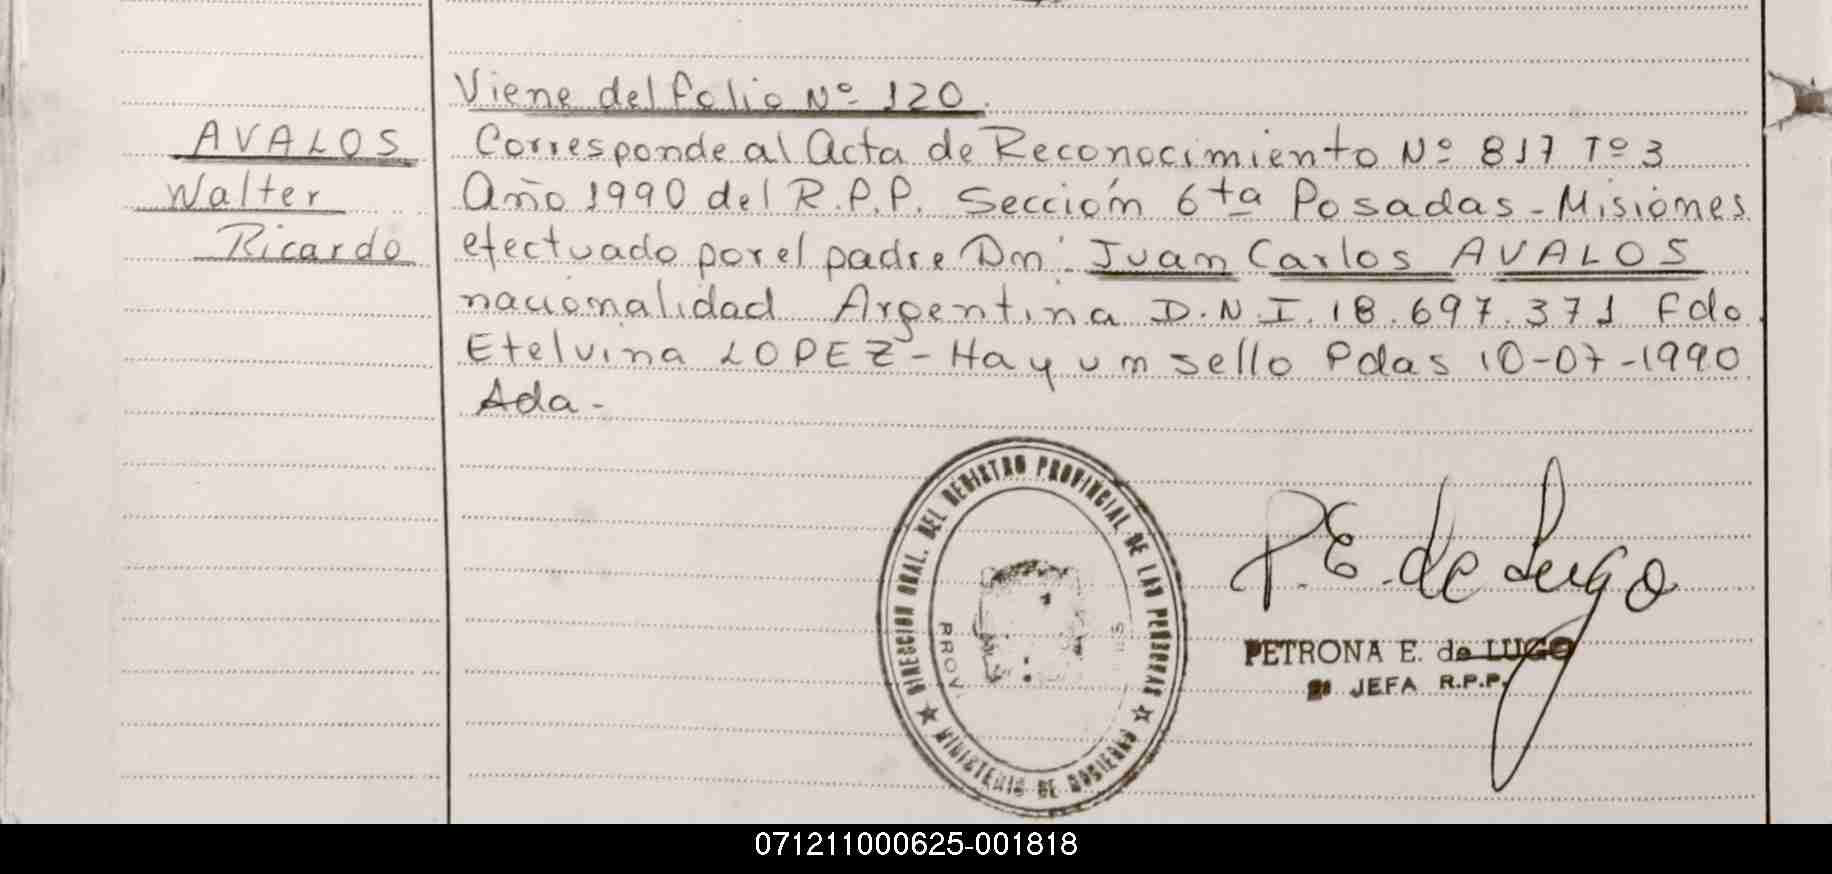 Viene del folio Nº 120.
AVALOS
Walter
Ricardo
Corresponde al Acta de Reconocimiento Nº 817 Tº 3
Año 1990 del R.P.P. Sección 6ta Posadas - Misiones
efectuado por el padre Dn: Juan Carlos AVALOS
nacionalidad Argentina D.N.I. 18.697.371 Fdo.
Etelvina LOPEZ - Hay un sello Pdas 10-07-1990
Ada -
DIRECCION GRAL. DEL REGISTRO PROVINCIAL DE LAS PERSONAS
MINISTERIO DE GOBIERNO
PROV.
P.E. de Lugo
PETRONA E. de LUGO
JEFA R.P.P.
071211000625-001818